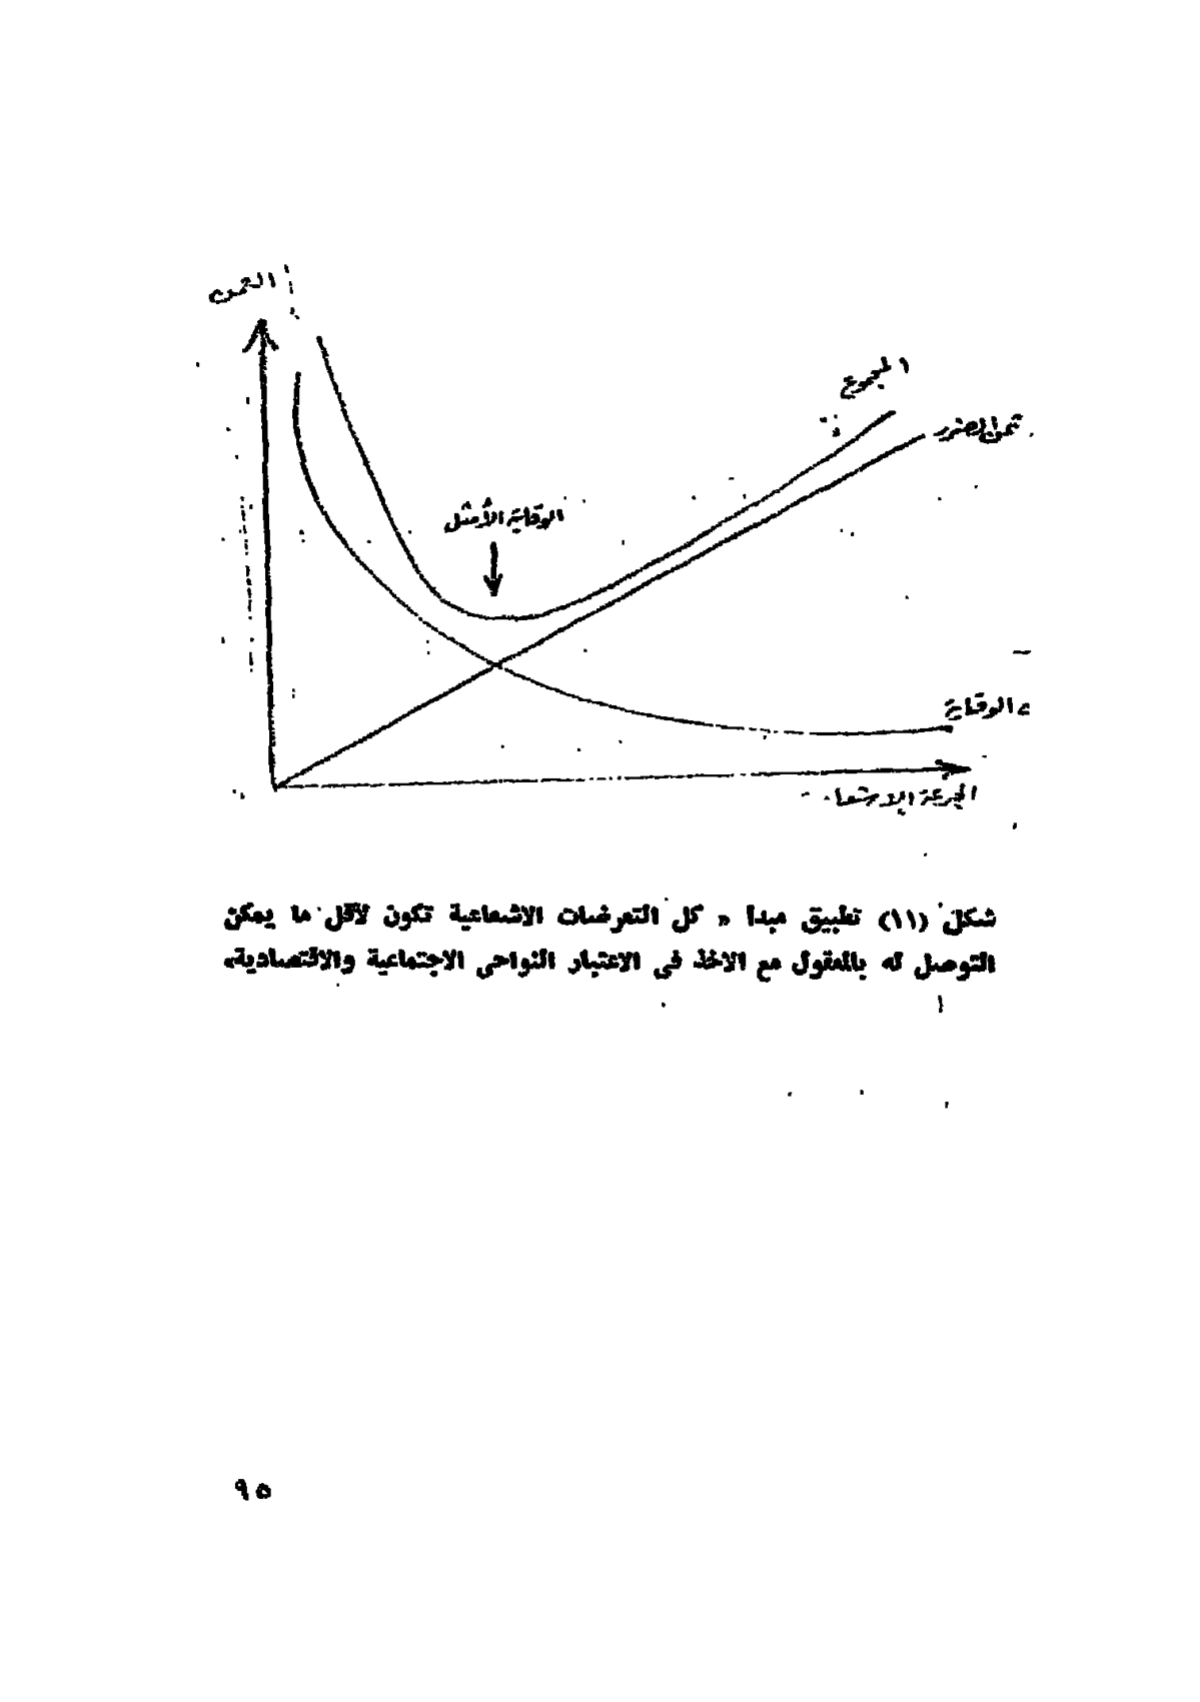 الثمن
المجموع
ثمن الضرر
الوقاية الأمثل
الوقاية
الجرعة
شكل (١١) تطبيق مبدأ « كل التعرضات الاشعاعية تكون لأقل ما يمكن
التوصل له بالمعقول مع الاخذ فى الاعتبار النواحى الاجتماعية والاقتصادية»
٩٥